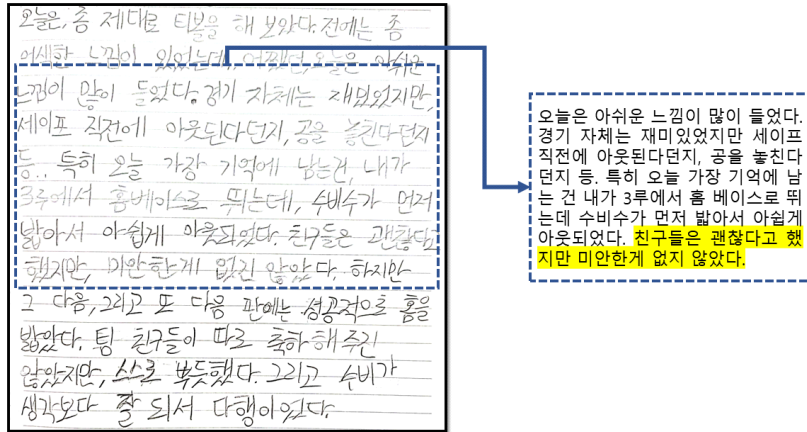 오늘은, 좀 제대로 티볼을 해 보았다. 전에는 좀
어색한 느낌이 있었는데, 어쨌던, 오늘은 아쉬운
느낌이 많이 들었다. 경기 자체는 재밌었지만,
세이프 직전에 아웃된다던지, 공을 놓친다던지
등.. 특히 오늘 가장 기억에 남는건, 내가
3루에서 홈베이스로 뛰는데, 수비수가 먼저
밟아서 아쉽게 아웃되었다. 친구들은 괜찮다고
했지만, 미안한게 없진 않았다. 하지만
그 다음, 그리고 또 다음 판에는 성공적으로 홈을
밟았다. 팀 친구들이 따로 축하 해 주진
않았지만, 스스로 뿌듯했다. 그리고 수비가
생각보다 잘 되서 다행이었다.
오늘은 아쉬운 느낌이 많이 들었다.
경기 자체는 재미있었지만 세이프
직전에 아웃된다던지, 공을 놓친다
던지 등. 특히 오늘 가장 기억에 남
는 건 내가 3루에서 홈 베이스로 뛰
는데 수비수가 먼저 밟아서 아쉽게
아웃되었다. 친구들은 괜찮다고 했
지만 미안한게 없지 않았다.